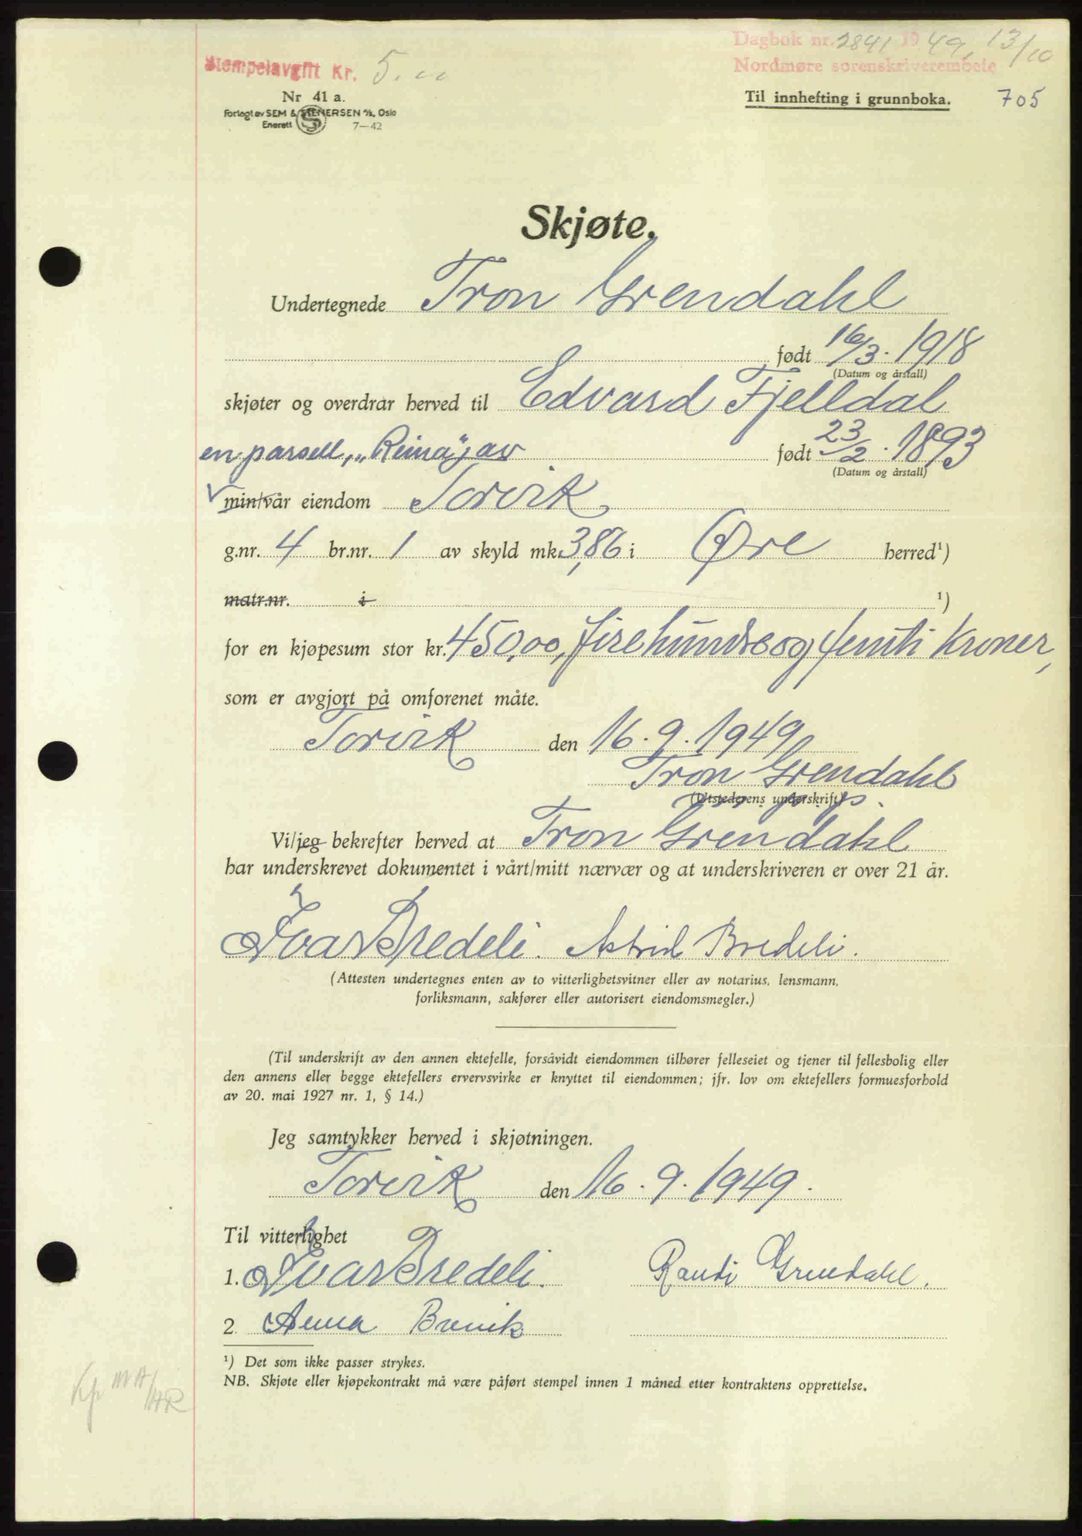 Dagbok nr. 2841 1949, 13/10
Stempelavgift Kr. 5.00
Nordmøre sorenskriverembete
Nr 41 a.
Til innhefting i grunnboka. 705
Forlagt av SEM & STENERSEN A/S, Oslo
Enerett 7-42
Skjøte.
Undertegnede Tron Grendahl
født 16/3. 1918
(Datum og årstall)
skjøter og overdrar herved til Edvard Fjelldal
en parsell, „Reina", av født 23/2. 1893
(Datum og årstall)
min/vår eiendom Torvik
g.nr. 4 br.nr. 1 av skyld mk. 3,86 i Øre herred¹)
matr.nr. i ¹)
for en kjøpesum stor kr. 450,00, firehundre og femti kroner,
som er avgjort på omforenet måte.
Torvik den 16. 9. 1949
Tron Grendahl
(Utstederens underskrift)
Vi/jeg bekrefter herved at Tron Grendahl
har underskrevet dokumentet i vårt/mitt nærvær og at underskriveren er over 21 år.
Ivar Bredeli. Astrid Bredeli.
(Attesten undertegnes enten av to vitterlighetsvitner eller av notarius, lensmann,
forliksmann, sakfører eller autorisert eiendomsmegler.)
(Til underskrift av den annen ektefelle, forsåvidt eiendommen tilhører felleseiet og tjener til fellesbolig eller
den annens eller begge ektefellers ervervsvirke er knyttet til eiendommen; jfr. lov om ektefellers formuesforhold
av 20. mai 1927 nr. 1, § 14.)
Jeg samtykker herved i skjøtningen.
Torvik den 16. 9. 1949.
Til vitterlighet
1. Ivar Bredeli. Randi Grendahl.
2 Anna Brevik
¹) Det som ikke passer strykes.
NB. Skjøte eller kjøpekontrakt må være påført stempel innen 1 måned etter kontraktens opprettelse.